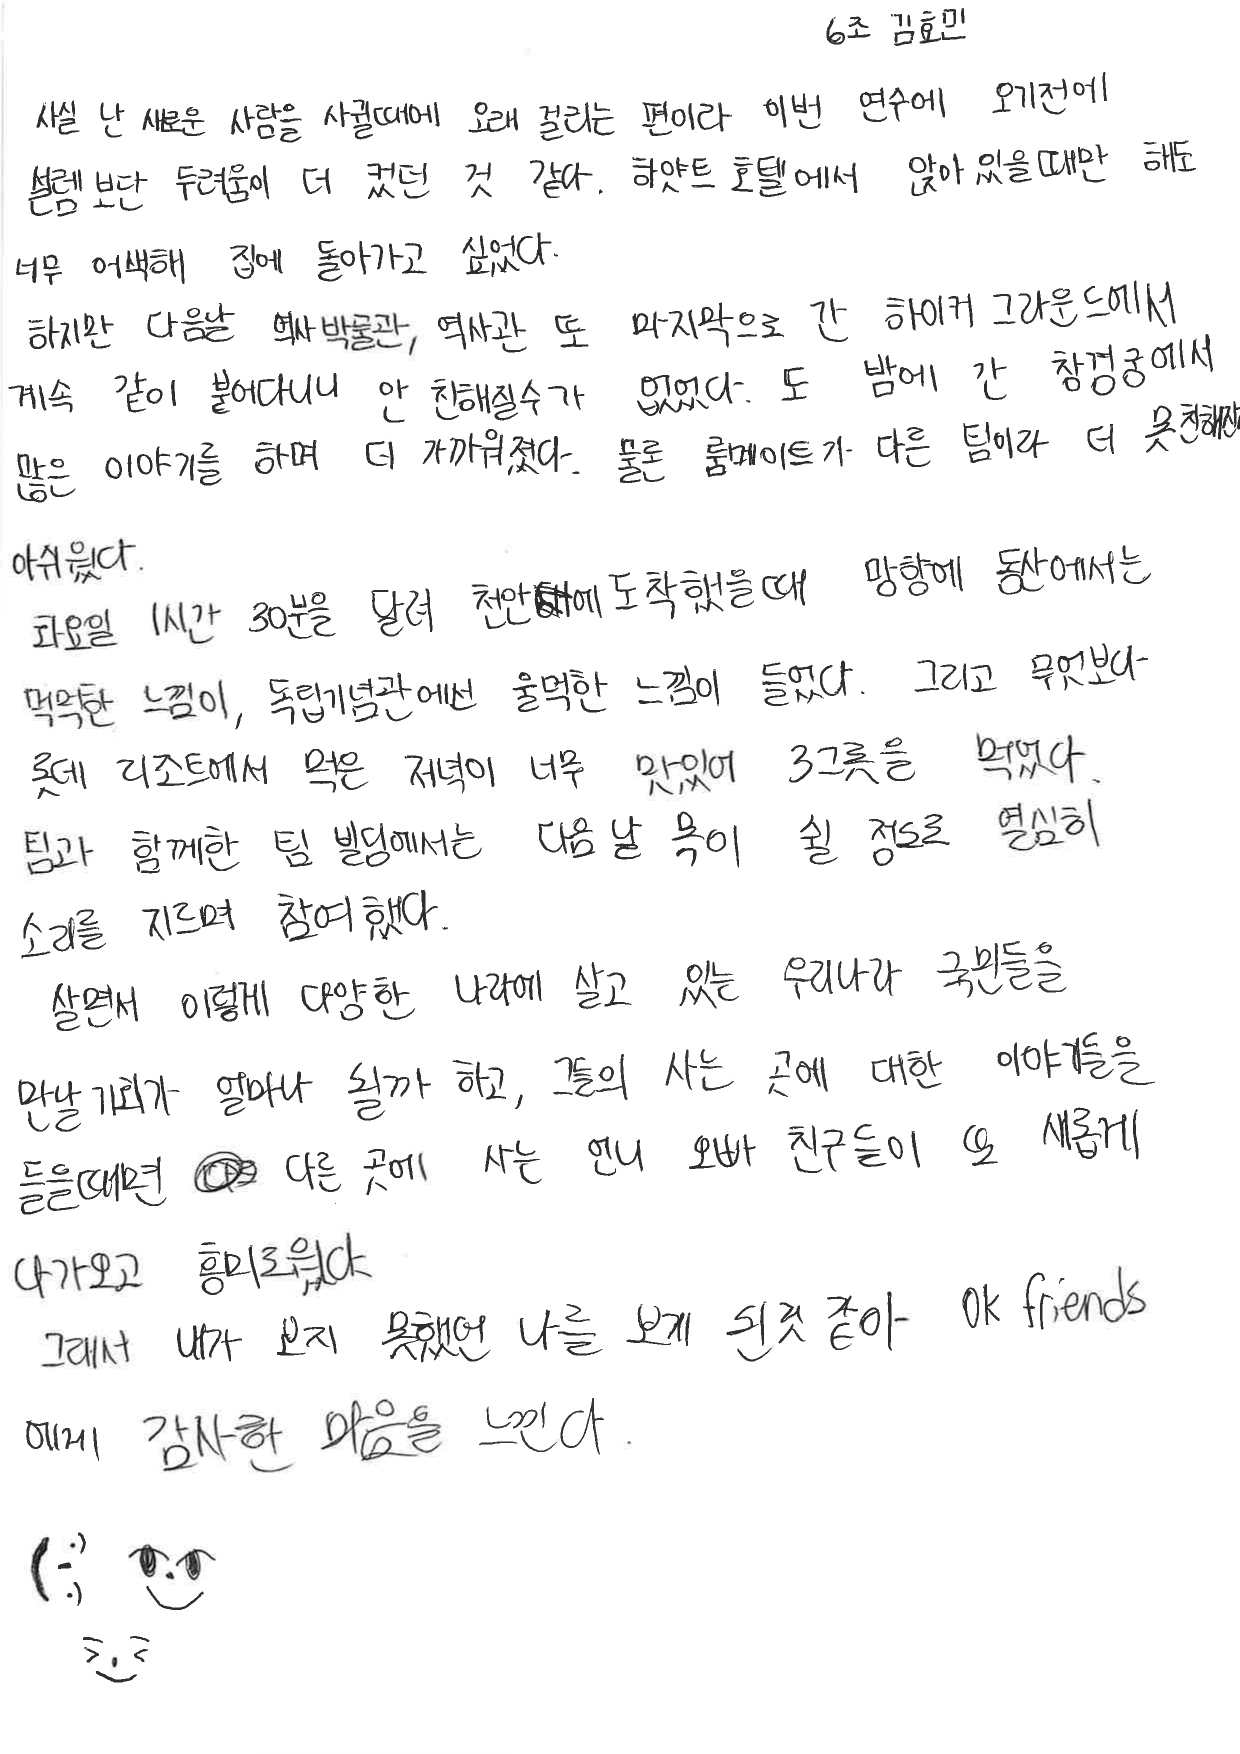 6조 김효민
사실 난 새로운 사람을 사귈때에 오래 걸리는 편이라 이번 연수에 오기전에
설렘보단 두려움이 더 컸던 것 같다. 하얏트 호텔에서 앉아 있을때만 해도
너무 어색해 집에 돌아가고 싶었다.
하지만 다음날 역사박물관, 역사관 또 마지막으로 간 하이커 그라운드에서
계속 같이 붙어다니니 안 친해질수가 없었다. 또 밤에 간 창경궁에서
많은 이야기를 하며 더 가까워졌다. 물론 룸메이트가 다른 팀이라 더 못친해진게
아쉬웠다.
화요일 1시간 30분을 달려 천안에 도착했을때 망향에 동산에서는
먹먹한 느낌이, 독립기념관에선 울먹한 느낌이 들었다. 그리고 무엇보다
롯데 리조트에서 먹은 저녁이 너무 맛있어 3그릇을 먹었다.
팀과 함께한 팀 빌딩에서는 다음 날 목이 쉴 정도로 열심히
소리를 지르며 참여했다.
살면서 이렇게 다양한 나라에 살고 있는 우리나라 국민들을
만날 기회가 얼마나 될까 하고, 그들의 사는 곳에 대한 이야기들을
들을때면 다른 곳에 사는 언니 오빠 친구들이 또 새롭게
다가오고 흥미로웠다
그래서 내가 보지 못했던 나를 보게 된것 같아 OK friends
에게 감사한 마음을 느낀다.